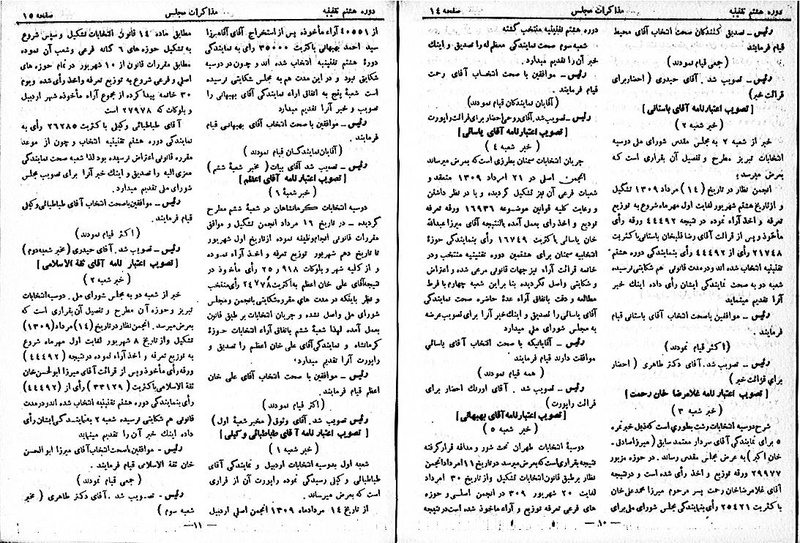 صفحه ۱۴ مذاکرات مجلس دوره هشتم تقنینیه
رئیس ـ تصدیق کنندگان صحت انتخاب آقای محیط
قیام فرمایند
(جمعی قیام نمودند)
رئیس ـ تصویب شد. آقای حیدری (احضار برای
قرائت خبر)
[تصویب اعتبارنامه آقای باستانی]
(خبر شعبه ۲)
خبر از شعبه ۲ به مجلس مقدس شورای ملی دوسیه
انتخابات تبریز مطرح و تفصیل آن بقراری است که
بعرض میرسد؛
انجمن نظار در تاریخ (۱۴) مرداد ۱۳۰۹ تشکیل
و از تاریخ هشتم شهریور لغایت اول مهرماه شروع به توزیع
تعرفه و اخذ آراء نموده در نتیجه ۴۴۴۹۲ ورقه رأی
مأخوذ و پس از قرائت آقای رضا قلیخان باستانی با کثریت
۲۱۷۴۸ رأی از ۴۴۴۹۲ رأی بنمایندگی دوره هشتم
تقنینیه انتخاب شده اند و در مدت قانونی هم شکایتی نرسیده
شعبه دو به صحت نمایندگی ایشان رأی داده اینك خبر
آنرا تقدیم مینماید
رئیس ـ موافقین با صحت انتخاب آقای باستانی قیام
فرمایند.
(اکثر قیام نمودند)
رئیس ـ تصویب شد. آقای دکتر طاهری (احضار
برای قرائت خبر)
[تصویب اعتبار نامه غلامرضا خان رحمت]
(خبر شعبه ۳)
شرح دوسیه انتخابات رشت بطوری است که ذیل خبر نمره
۵ برای نمایندگی آقای سردار معتمد سابق (میرزا صادق ـ
خان اکبر) به عرض مجلس مقدس رساند. در حوزه مزبور
۲۹۹۷۷ ورقه توزیع و اخذ رأی شده است و در نتیجه
آقای غلامرضا خان رحمت پسر مرحوم میرزا محمد علی خان
با کثریت ۲۵۴۲۱ رأی بنمایندگی مجلس شورای ملی برای
دوره هشتم تقنینیه منتخب گشته
شعبه سوم صحت نمایندگی معظم له را تصدیق و اینك
خبر آن را تقدیم میدارد.
رئیس ـ موافقین با صحت انتخاب آقای رحمت
قیام فرمایند.
(آقایان نمایندگان قیام نمودند)
رئیس ـ تصویب شد. آقای روحی (احضار برای قرائت راپورت)
[تصویب اعتبارنامه آقای یاسائی]
(خبر شعبه ۴)
جریان انتخابات سمنان بطرزی است که بعرض میرساند
انجمن اصلی در ۲۱ امرداد ۱۳۰۹ منعقد و
شعبات فرعی آن نیز تشکیل گردیده و با در نظر داشتن
و رعایت کلیه قوانین موضوعه ۱۶۹۳۶ ورقه تعرفه
توزیع و اخذ رأی بعمل آمده بالنتیجه آقای میرزا عبدالله
خان یاسائی با کثریت ۱۶۷۴۹ رأی بنمایندگی حوزهٔ
انتخابیه سمنان برای هشتمین دوره تقنینیه منتخب و در
خاتمه قرائت آراء نیز جهات قانونی مرعی شده و اعتراض
و شکایتی واصل نگردیده بنا بر این شعبه چهارم با فرط
مطالعه و دقت باتفاق آراء عدهٔ حاضره صحت نمایندگی
آقای یاسائی را تصویب و اینك خبر آنرا برای تصویب عرضه
به مجلس شورای ملی میدارد
رئیس ـ آقایانیکه با صحت انتخاب آقای یاسائی
موافقت دارند قیام فرمایند.
(همه قیام نمودند)
رئیس ـ تصویب شد. آقای اورنك احضار برای
قرائت راپورت)
[تصویب اعتبارنامه آقای بهبهانی]
(خبر شعبه ۵)
دوسیهٔ انتخابات طهران تحت شور و مداقه قرار گرفته
نتیجه بقراری است که بعرض میرسد در تاریخ ۱۱ امرداد انجمن
نظار بر طبق قانون انتخابات تشکیل و از تاریخ ۳۰ امرداد
لغایت ۲۰ شهریور ۳۰۹ در انجمن اصلی و حوزه
های فرعی توزیع تعرفه و آراء مأخوذ شده است در نتیجه
ـ ۱۰ ـ
دوره هشتم تقنینیه مذاکرات مجلس صفحه ۱۵
از ۴۰۵۵۱ آراء مأخوذه پس از استخراج آقای آقا میرزا
سید احمد بهبهانی با کثریت ۳۵۰۰۰ رأی به نمایندگی
دوره هشتم تقنینیه انتخاب شده اند و چون در دوسیه
شکایتی نبود و در این مدت هم به مجلس شکایتی نرسیده
است شعبهٔ پنج به اتفاق آراء نمایندگی آقای بهبهانی را
تصویب و خبر آنرا تقدیم میدارد
رئیس ـ موافقین با صحت انتخاب آقای بهبهانی قیام
فرمایند.
(آقایان نمایندگان قیام نمودند)
رئیس ـ تصویب شد آقای بیات (مخبر شعبهٔ ششم)
[تصویب اعتبار نامه آقای اعظم]
(خبر شعبهٔ ۶)
دوسیه انتخابات کرمانشاهان در شعبهٔ ششم مطرح
گردیده ـ در تاریخ ۱۶ مرداد انجمن تشکیل و موافق
مقررات قانونی انجام وظیفه نموده از تاریخ اول شهریور
تا تاریخ دهم شهریور توزیع تعرفه و اخذ آراء نموده
و از کلیه شهر و بلوکات ۲۵۹۱۸ رأی مأخوذ در
نتیجه آقای علی خان اعظم با کثریت ۲۴۷۷۸ رأی منتخب
و نظر باینکه در مدت های مقرره شکایتی بانجمن و مجلس
شورای ملی واصل نشده و جریان انتخابات بر طبق قانون
بعمل آمده لهذا شعبهٔ ششم باتفاق آراء انتخابات حوزهٔ
کرمانشاه و نمایندگی آقای علی خان اعظم را تصدیق و
راپورت آنرا تقدیم میدارد
رئیس ـ موافقین با صحت انتخاب آقای علی خان
اعظم قیام فرمایند.
(اکثر قیام نمودند)
رئیس تصویب شد. آقای وثوق (مخبر شعبهٔ اول)
[تصویب اعتبارنامه آقای طباطبائی وکیلی]
(خبر شعبه ۱)
شعبه اول بدوسیه انتخابات اردبیل و نمایندگی آقای
طباطبائی وکیلی رسیدگی نموده راپورت آن از قراری
است که بعرض میرساند.
از تاریخ ۱۴ مرداد ماه ۱۳۰۹ انجمن اصلی اردبیل
مطابق ماده ۱۴ قانونی انتخابات تشکیل و سپس شروع
به تشکیل حوزه های ۶ گانه فرعی و شعب آن نموده
مطابق مقررات قانون از ۱۰ شهریور در تمام حوزه های
اصلی و فرعی شروع به توزیع تعرفه و اخذ رأی شده و یوم
۳۰ خاتمه پیدا کرده از مجموع آراء مأخوذه شهر اردبیل
و بلوکات که ۲۷۹۷۸ است
آقای طباطبائی وکیلی با کثریت ۲۶۲۸۵ رأی به
نمایندگی دوره هشتم تقنینیه انتخاب و چون از موعد
مقرره قانونی اعتراض نرسیده بود لذا شعبه صحت نمایندگی
معزی الیه را تصدیق و اینك خبر آنرا برای تصویب مجلس
شورای ملی تقدیم میدارد.
رئیس ـ موافقین با صحت انتخاب آقای طباطبائی وکیلی
قیام فرمایند.
(اکثر قیام نمودند)
رئیس ـ تصویب شد. آقای حیدری (مخبر شعبه دوم)
[تصویب اعتبار نامه آقای ثقة الاسلامی]
(خبر شعبه ۲)
خبر از شعبه دو به مجلس شورای ملی. دوسیه انتخابات
تبریز و حوزه آن مطرح و تفصیل آن بقراری است که
بعرض میرسد. انجمن نظار در تاریخ (۱۴) مرداد (۱۳۰۹)
تشکیل و از تاریخ ۸ شهریور لغایت اول مهر ماه شروع
به توزیع تعرفه و اخذ آراء نموده در نتیجه (۴۴۴۹۲)
ورقه رأی مأخوذ و پس از قرائت آقای میرزا ابوالحسن خان
ثقة الاسلامی با کثریت (۳۳۱۲۹) رأی از (۴۴۴۹۲)
رأی بنمایندگی دوره هشتم تقنینیه انتخاب شده اند و در مدت
قانونی هم شکایتی نرسیده شعبه ۲ بنمایندگی ایشان رأی
داده اینك خبر آن را تقدیم مینماید
رئیس ـ موافقین با صحت انتخاب آقای میرزا ابو الحسن
خان ثقة الاسلامی قیام فرمایند.
(جمعی قیام نمودند)
رئیس ـ تصویب شد. آقای دکتر طاهری (مخبر
شعبه سوم)
ـ ۱۱ ـ